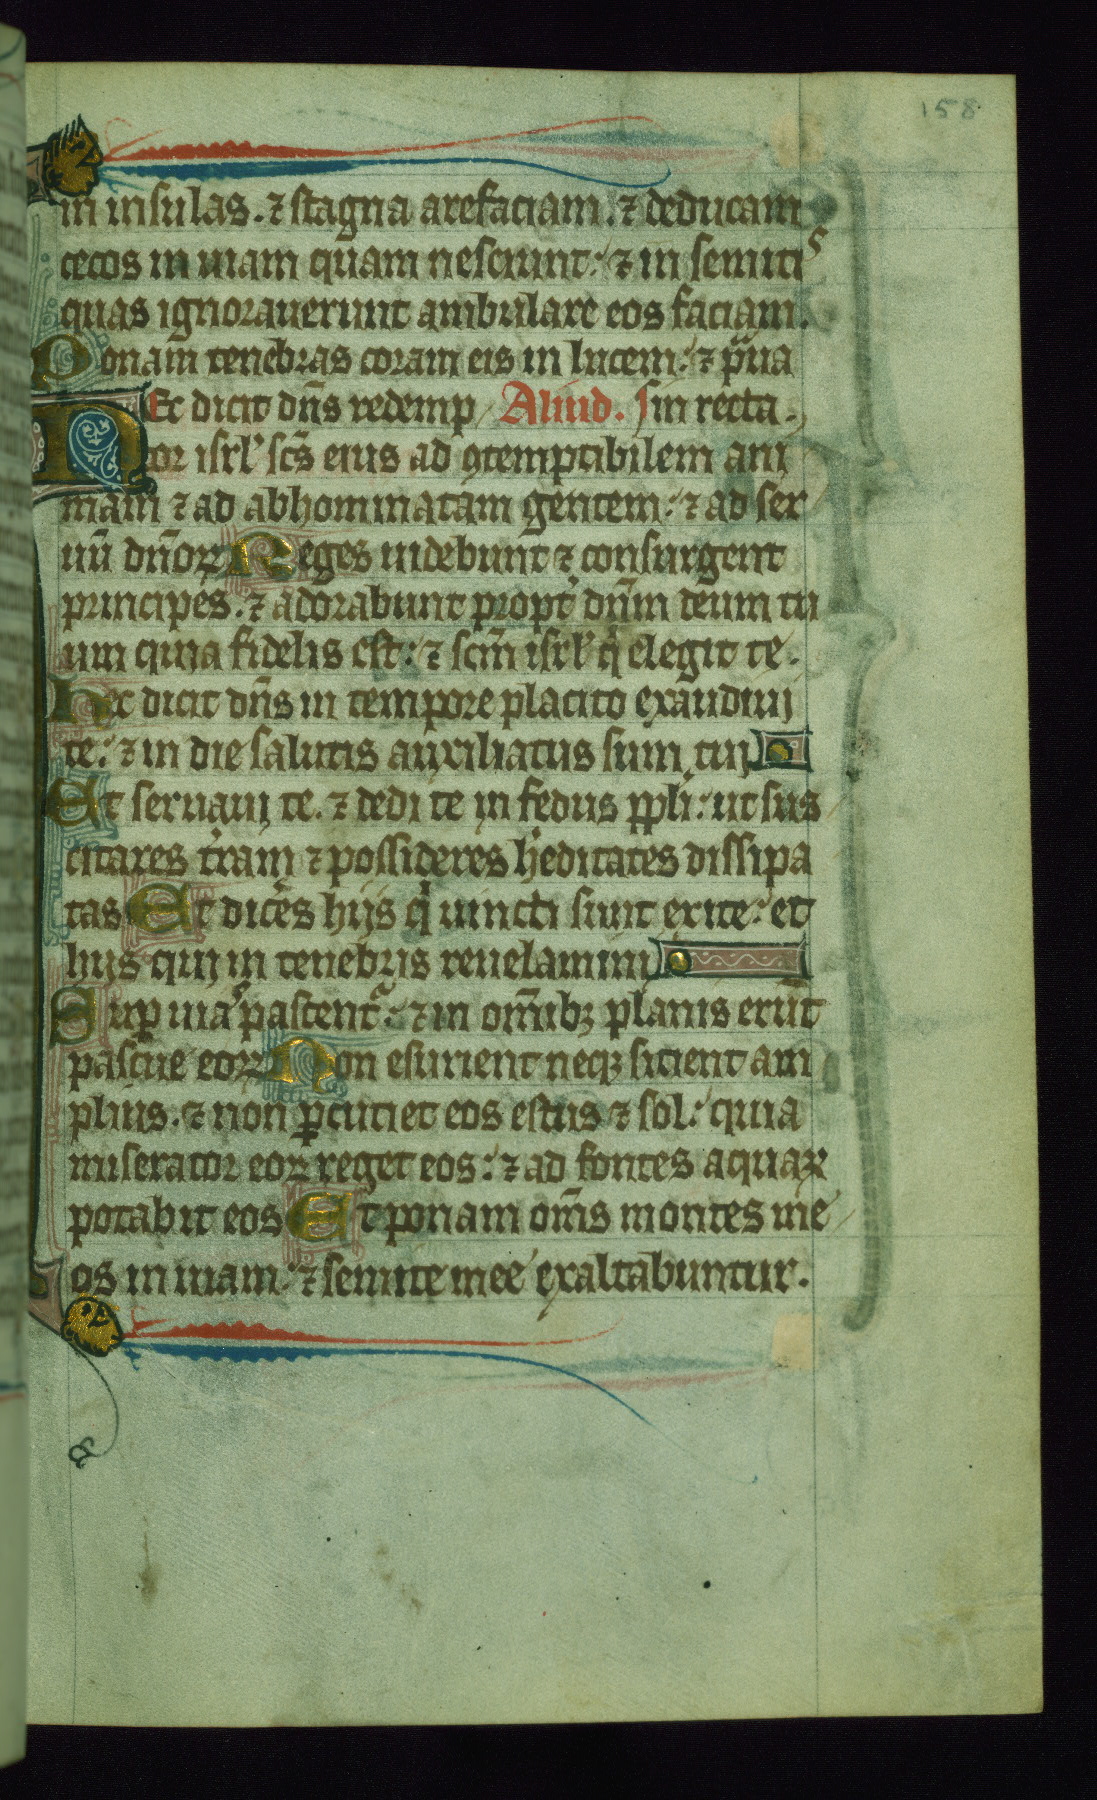 158
in insulas. ⁊ stagna arefaciam. ⁊ deducam
cecos in uiam quam nesciunt: ⁊ in semitis
quas ignorauerunt ambulare eos faciam.
Ponam tenebras coram eis in lucem: ⁊ praua
Hec dicit dñs redemp Aliud. ſ in recta.
tor isrl' scs̄ eius ad ꝯtemptibilem ani
mam ⁊ ad abhominatam gentem: ⁊ ad ser
uū dñoꝝ Reges uidebunt ⁊ consurgent
principes. ⁊ adorabunt propt' dñm deum tu
um quia fidelis est: ⁊ scm̄ isrl' qͥ elegit te.
hec dicit dñs in tempore placito exaudiui
te: ⁊ in die salutis auxiliatus sum tui
Et seruaui te. ⁊ dedi te in fedus ppli: ut sus
citares t'ram ⁊ possideres h'editates dissipa
tas Et dices hijs qͥ uincti sunt exite: et
hijs qui in tenebris reuelamini
Sup uias pascentͬ: ⁊ in om̄ibꝫ planis erūt
pascue eoꝝ Non esurient neqꝫ sitient am
plius. ⁊ non ꝑcutiet eos estus ⁊ sol: quia
miserator eoꝝ reget eos: ⁊ ad fontes aquaꝝ
potabit eos Et ponam om̄s montes me
os in uiam: ⁊ semite mee exaltabuntur.